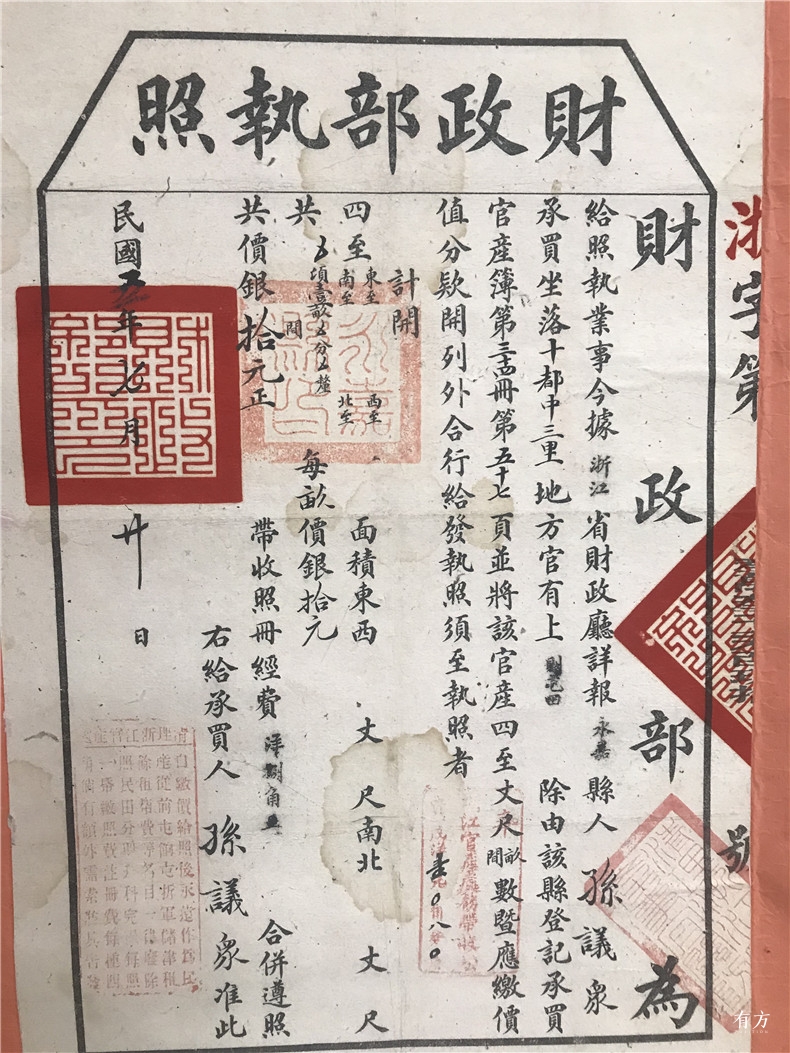 財政部執照
浙字第
號
財政部為
給照執業事今據浙江省財政廳詳報永嘉縣人孫議眾
承買坐落十都中三里地方官有上則屯田除由該縣登記承買
官產簿第冊第五十七頁並將該官產四至丈尺畝間數暨應繳價
值分欵開列外合行給發執照須至執照者
計開
四至東至南至西至北至面積東西丈尺南北丈尺
共項壹畝分釐間每畝價銀拾元
共價銀拾元正帶收照冊經費洋捌角合併遵照
右給承買人孫議眾准此
民國五年七月廿日
有方